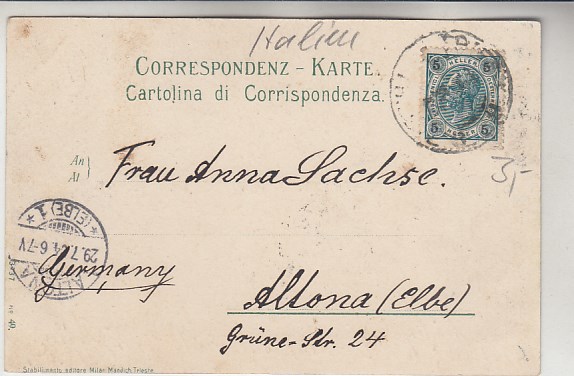 Italien
CORRESPONDENZ - KARTE.
Cartolina di Corrispondenza.
5 HELLER 5
5 HELLER 5
3,-
An
Al
Frau Anna Sachse.
* (ELBE) 1 *
29.7.04. 6-7V
ALTONA
Germany
Altona (Elbe)
Grüne-Str. 24
No 49.
Stabilimento editore Milan Mandich Trieste